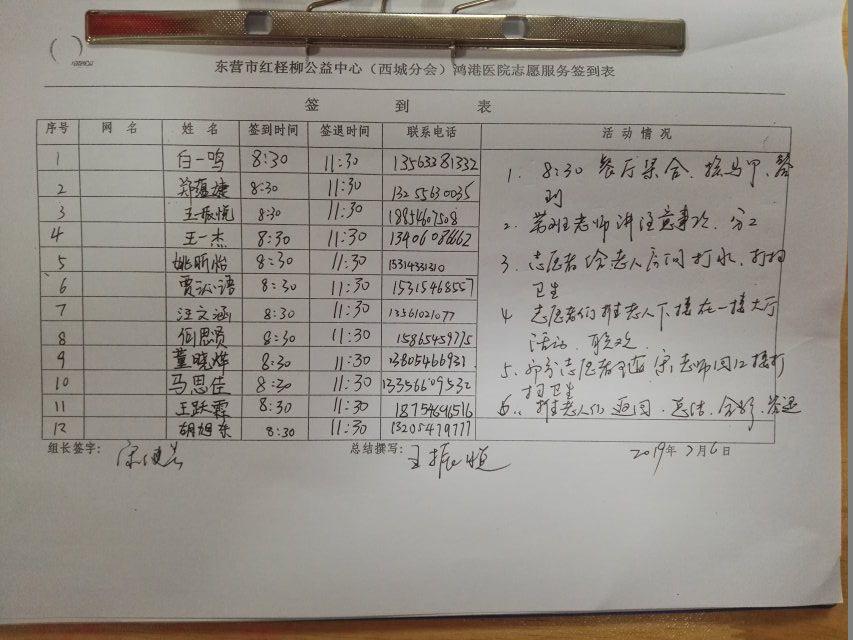 东营市红柽柳公益中心（西城分会）鸿港医院志愿服务签到表
签 到 表
序号 网 名 姓 名 签到时间 签退时间 联系电话 活 动 情 况
1 白一鸣 8:30 11:30 13563281332
2 郑蕴捷 8:30 11:30 13255630035
3 王振悦 8:30 11:30 18854607508
4 王一杰 8:30 11:30 13406086662
5 姚昕怡 8:30 11:30 15314331310
6 贾沁语 8:30 11:30 15315468557
7 汪文涵 8:30 11:30 13561021077
8 何思贤 8:30 11:30 15865459775
9 董晓烨 8:30 11:30 13805466931
10 马思佳 8:30 11:30 13356609532
11 王跃霖 8:30 11:30 18754696516
12 胡旭东 8:30 11:30 13205479777
1. 8:30 餐厅集合、 马甲、签
到
2. 老师讲注意事项、分工
3. 志愿者给老人房间打水、打扫
卫生
4 志愿者们推老人下楼在一楼大厅
活动、联欢
5. 部分志愿者 老师 楼打
扫卫生
6. 推老人们返回、总结、合影、签退
组长签字： 总结撰写：王振恒 2019年7月6日